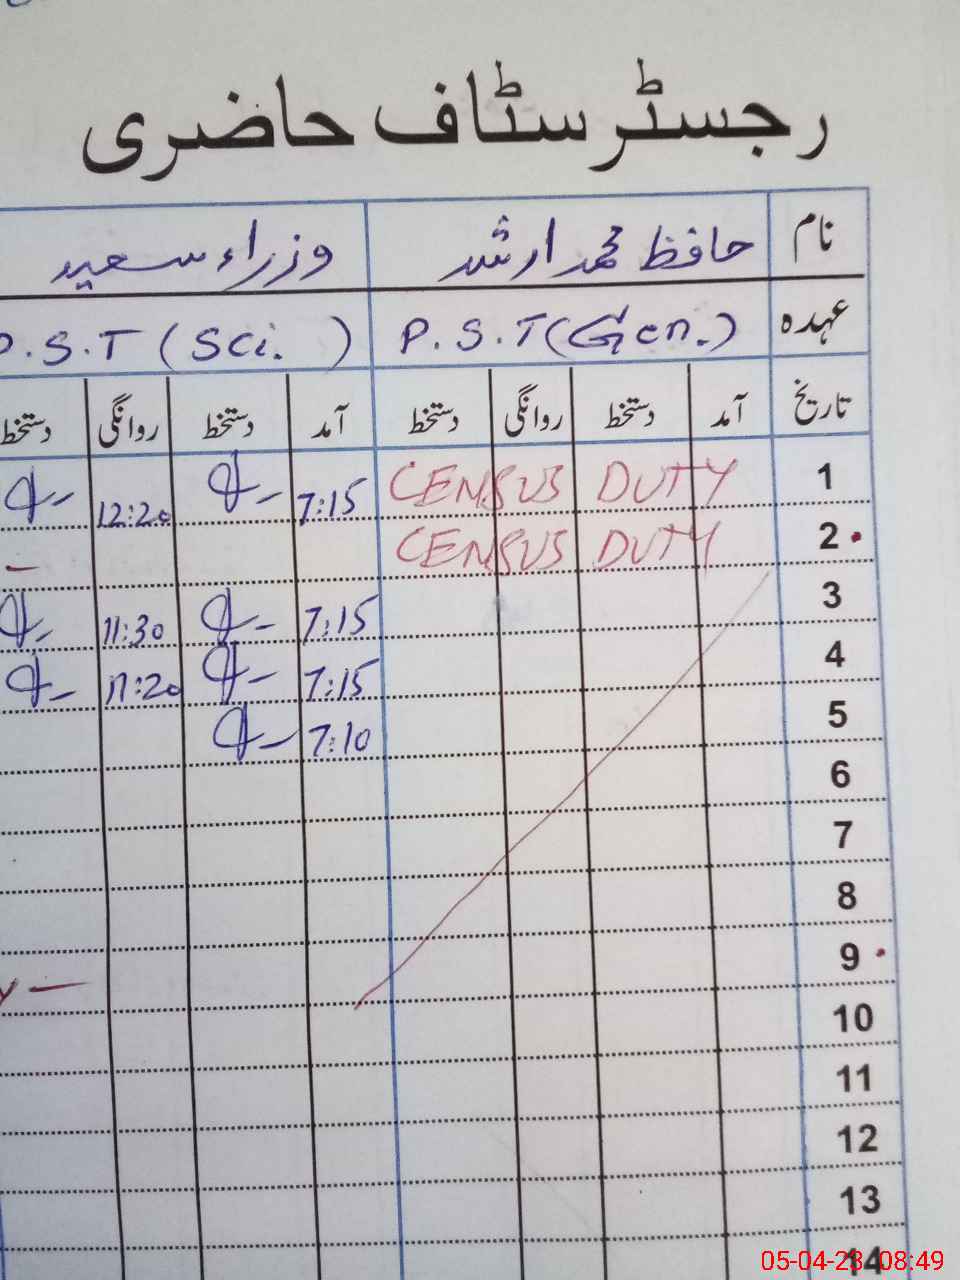 رجسٹر سٹاف حاضری
نام حافظ محمد ارشد وزراء سعید
عہدہ P.S.T (Gen.) P.S.T (Sci.)
تاریخ آمد دستخط روانگی دستخط آمد دستخط روانگی دستخط
1 CENSUS DUTY 7:15 12:20
2 CENSUS DUTY
3 7:15 11:30
4 7:15 11:20
5 7:10
6
7
8
9
10
11
12
13
14
05-04-23 08:49